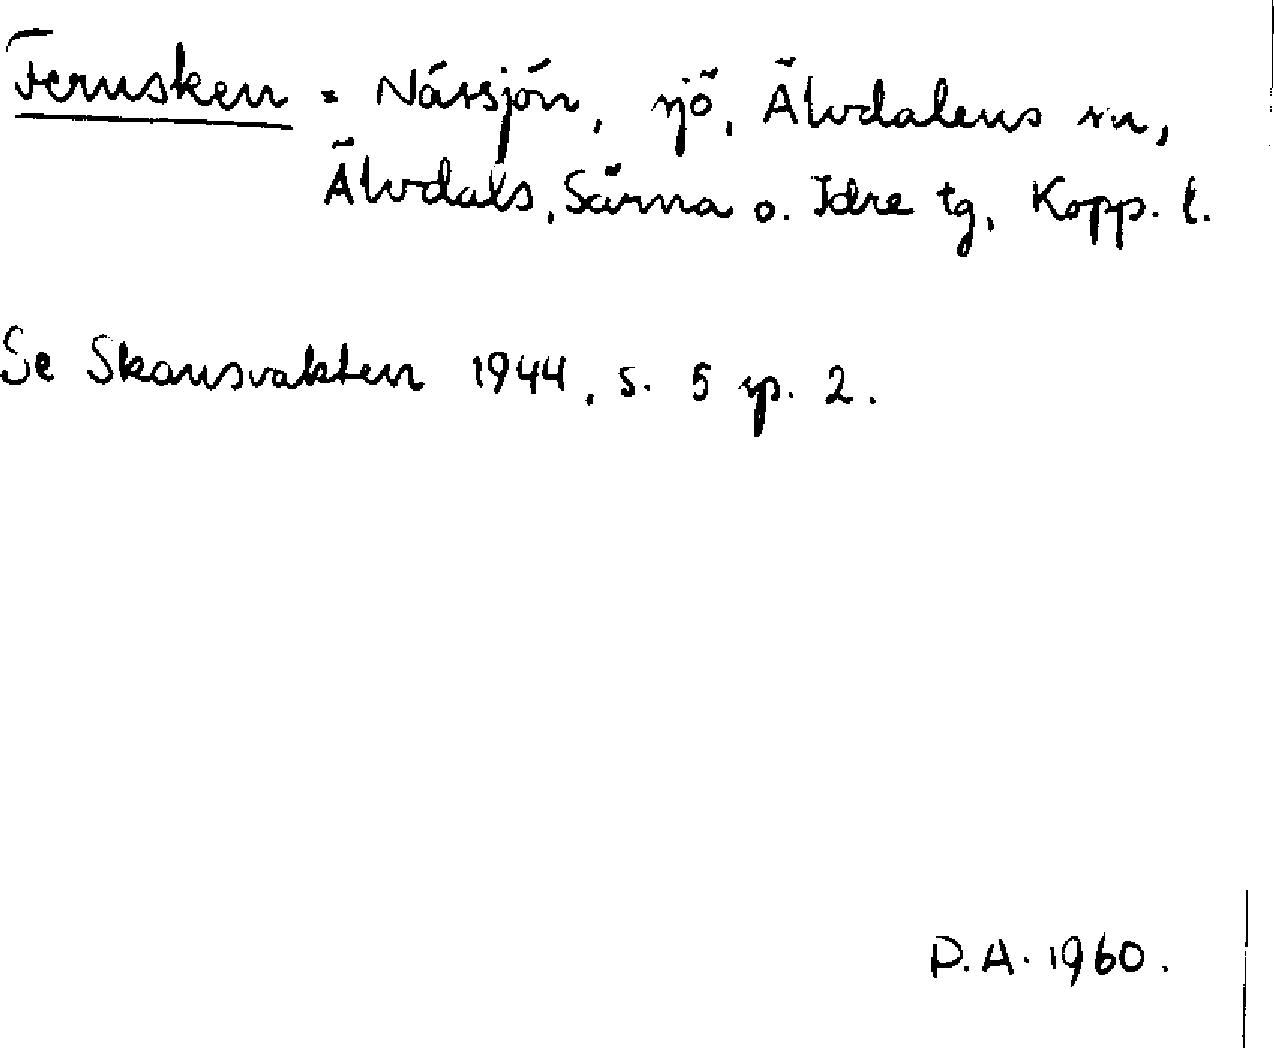 Fernsken = Nässjön, sjö, Älvdalens sn,
Älvdals, Särna o. Idre tg, Kopp. l.
Se Skansvakten 1944, s. 5 sp. 2.
D.A. 1960.